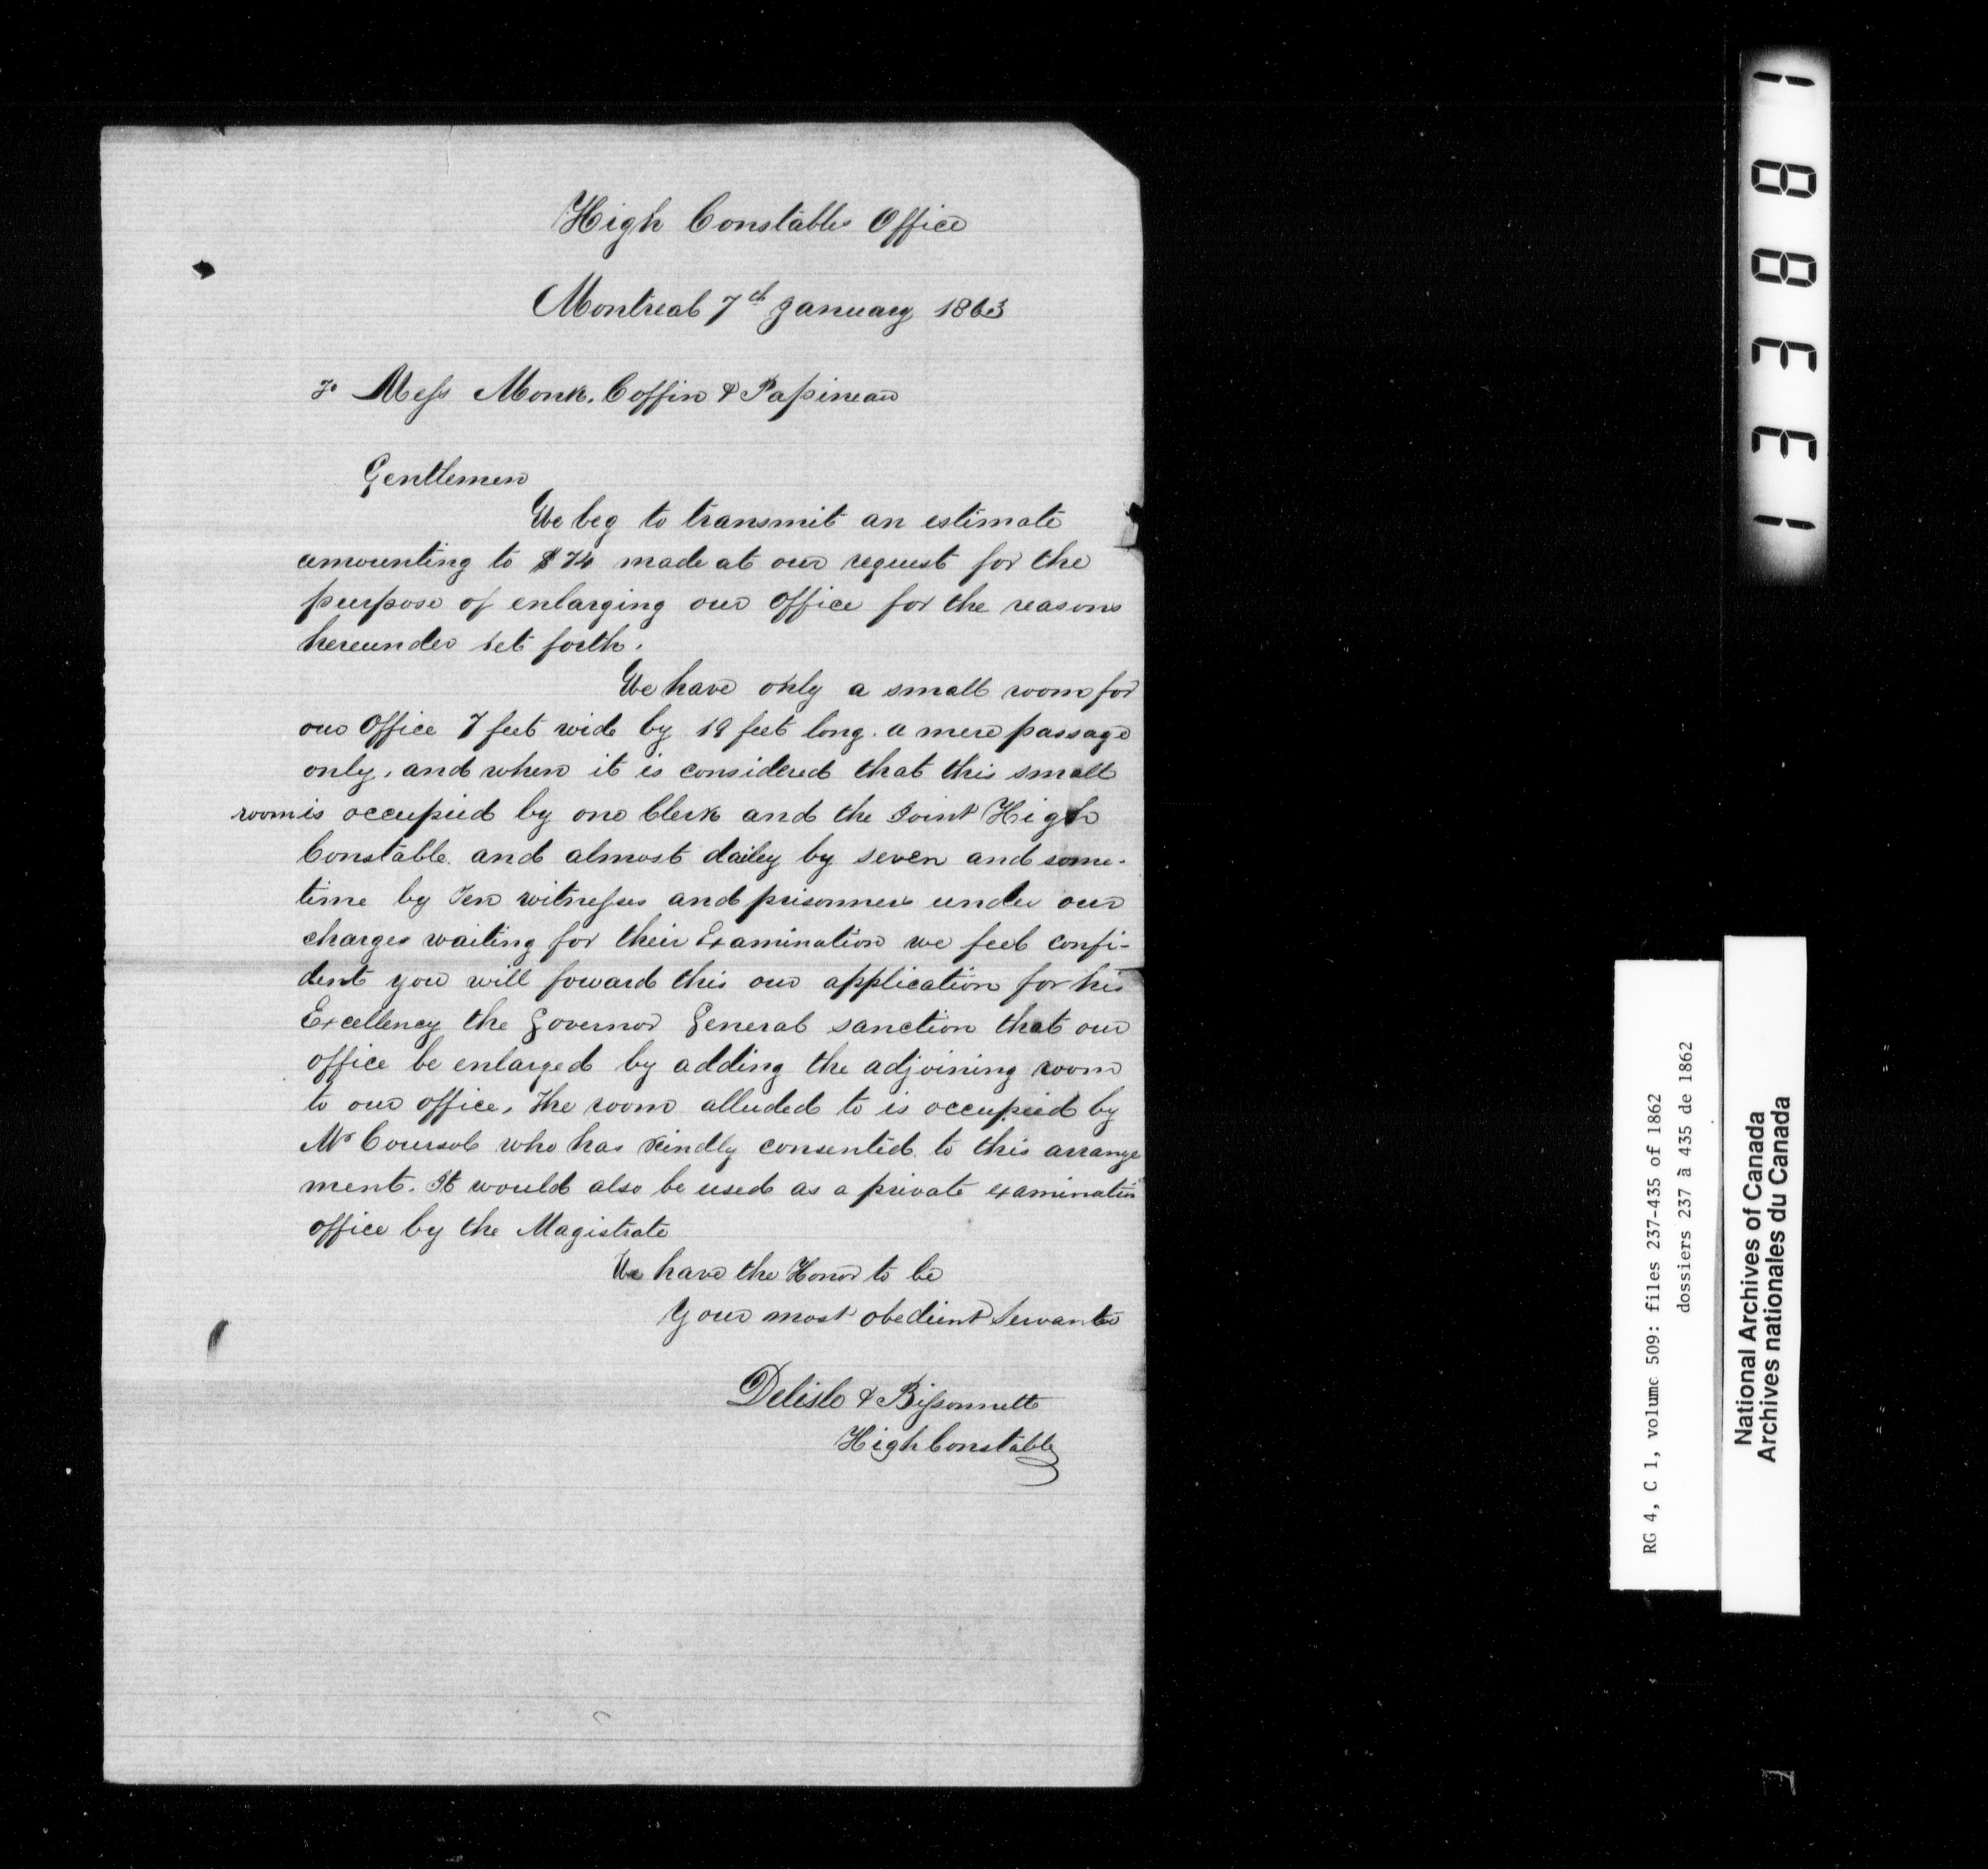 High Constables Office
Montreal 7th January 1863
To Mess Monk, Coffin & Papineau
Gentlemen
We beg to transmit an estimate
amounting to $74 made at our request for the
purpose of enlarging our Office for the reasons
hereunder set forth.
We have only a small room for
our Office 7 feet wide by 19 feet long. a mere passage
only, and when it is considered that this small
room is occupied by one Clerk and the Joint High
Constable and almost dailey by seven and some-
time by Ten witnesses and prisonners under our
charges waiting for their Examination we feel confi-
dent you will foward this our application for his
Excellency the Governor General sanction that our
office be enlarged by adding the adjoining room
to our office, The room alluded to is occupied by
Mr Coursol who has kindly consented to this arrange
ment. It would also be used as a private examination
office by the Magistrate
We have the Honor to be
Your most obedient Servants
Delisle & Bissonnette
High Constable
133881
RG 4, C 1, volume 509: files 237-435 of 1862
dossiers 237 à 435 de 1862
National Archives of Canada
Archives nationales du Canada